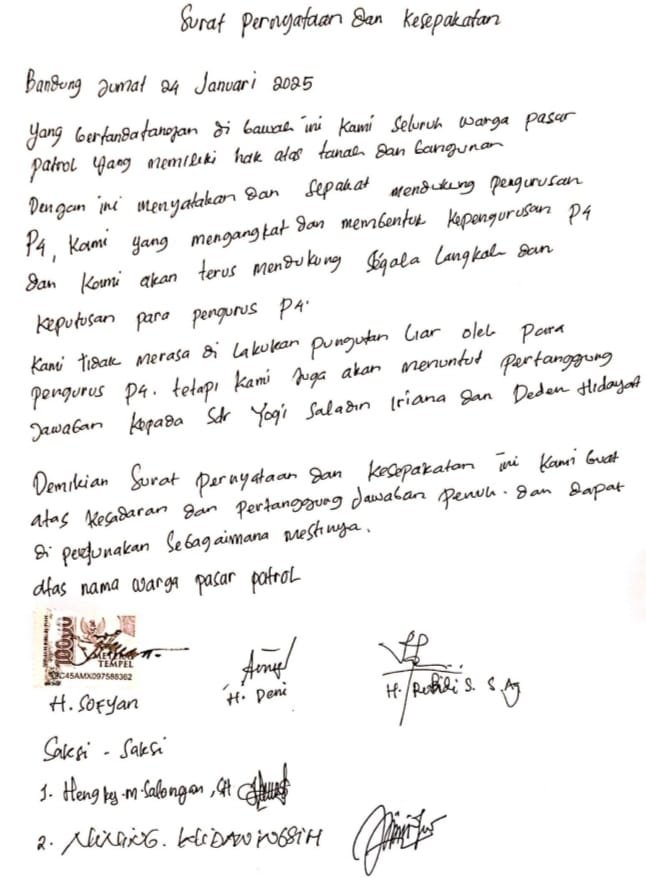 Surat Pernyataan dan Kesepakatan
Bandung Jumat 24 Januari 2025
Yang bertandatangan di bawah ini kami seluruh warga pasar
patrol yang memiliki hak atas tanah dan bangunan
Dengan ini menyatakan dan sepakat mendukung pengurusan
P4, kami yang mengangkat dan membentuk kepengurusan P4
dan kami akan terus mendukung segala langkah dan
keputusan para pengurus P4.
Kami tidak merasa di lakukan pungutan liar oleh para
pengurus P4. tetapi kami juga akan menuntut pertanggung
jawaban kepada Sdr Yogi Saladin Iriana dan Deden Hidayat
Demikian Surat pernyataan dan kesepakatan ini kami buat
atas kesadaran dan pertanggung jawaban penuh. dan dapat
di pergunakan sebagaimana mestinya.
atas nama warga pasar patrol
10000
TEMPEL
C45AMX097588362
H. SOFyan
H. Deni
H. S. S. Ag
Saksi - Saksi
1. Hengky.M.Salongan, SH
2.